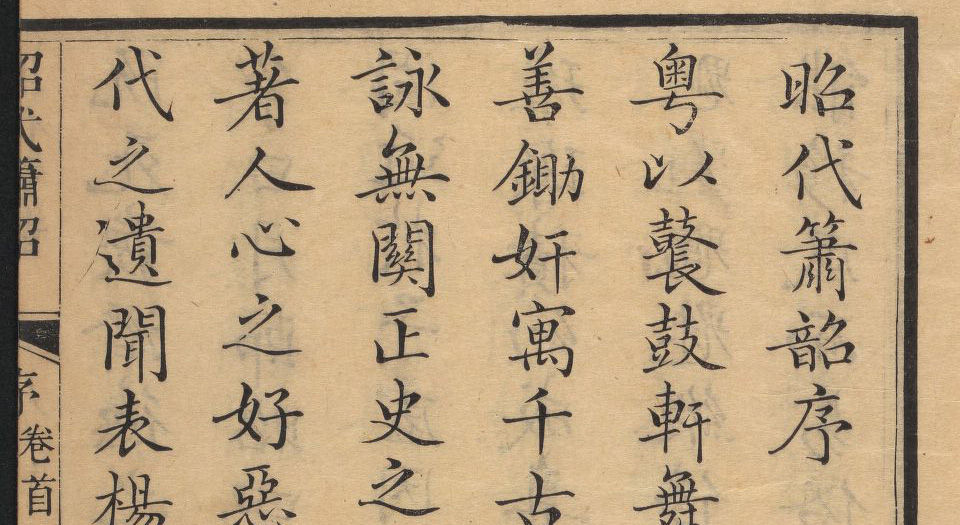 昭代簫韶序
粤以鼚鼓軒舞
善鋤奸寓千古
詠無關正史之
著人心之好惡
代之遺聞表楊
昭代簫韶
序
卷首